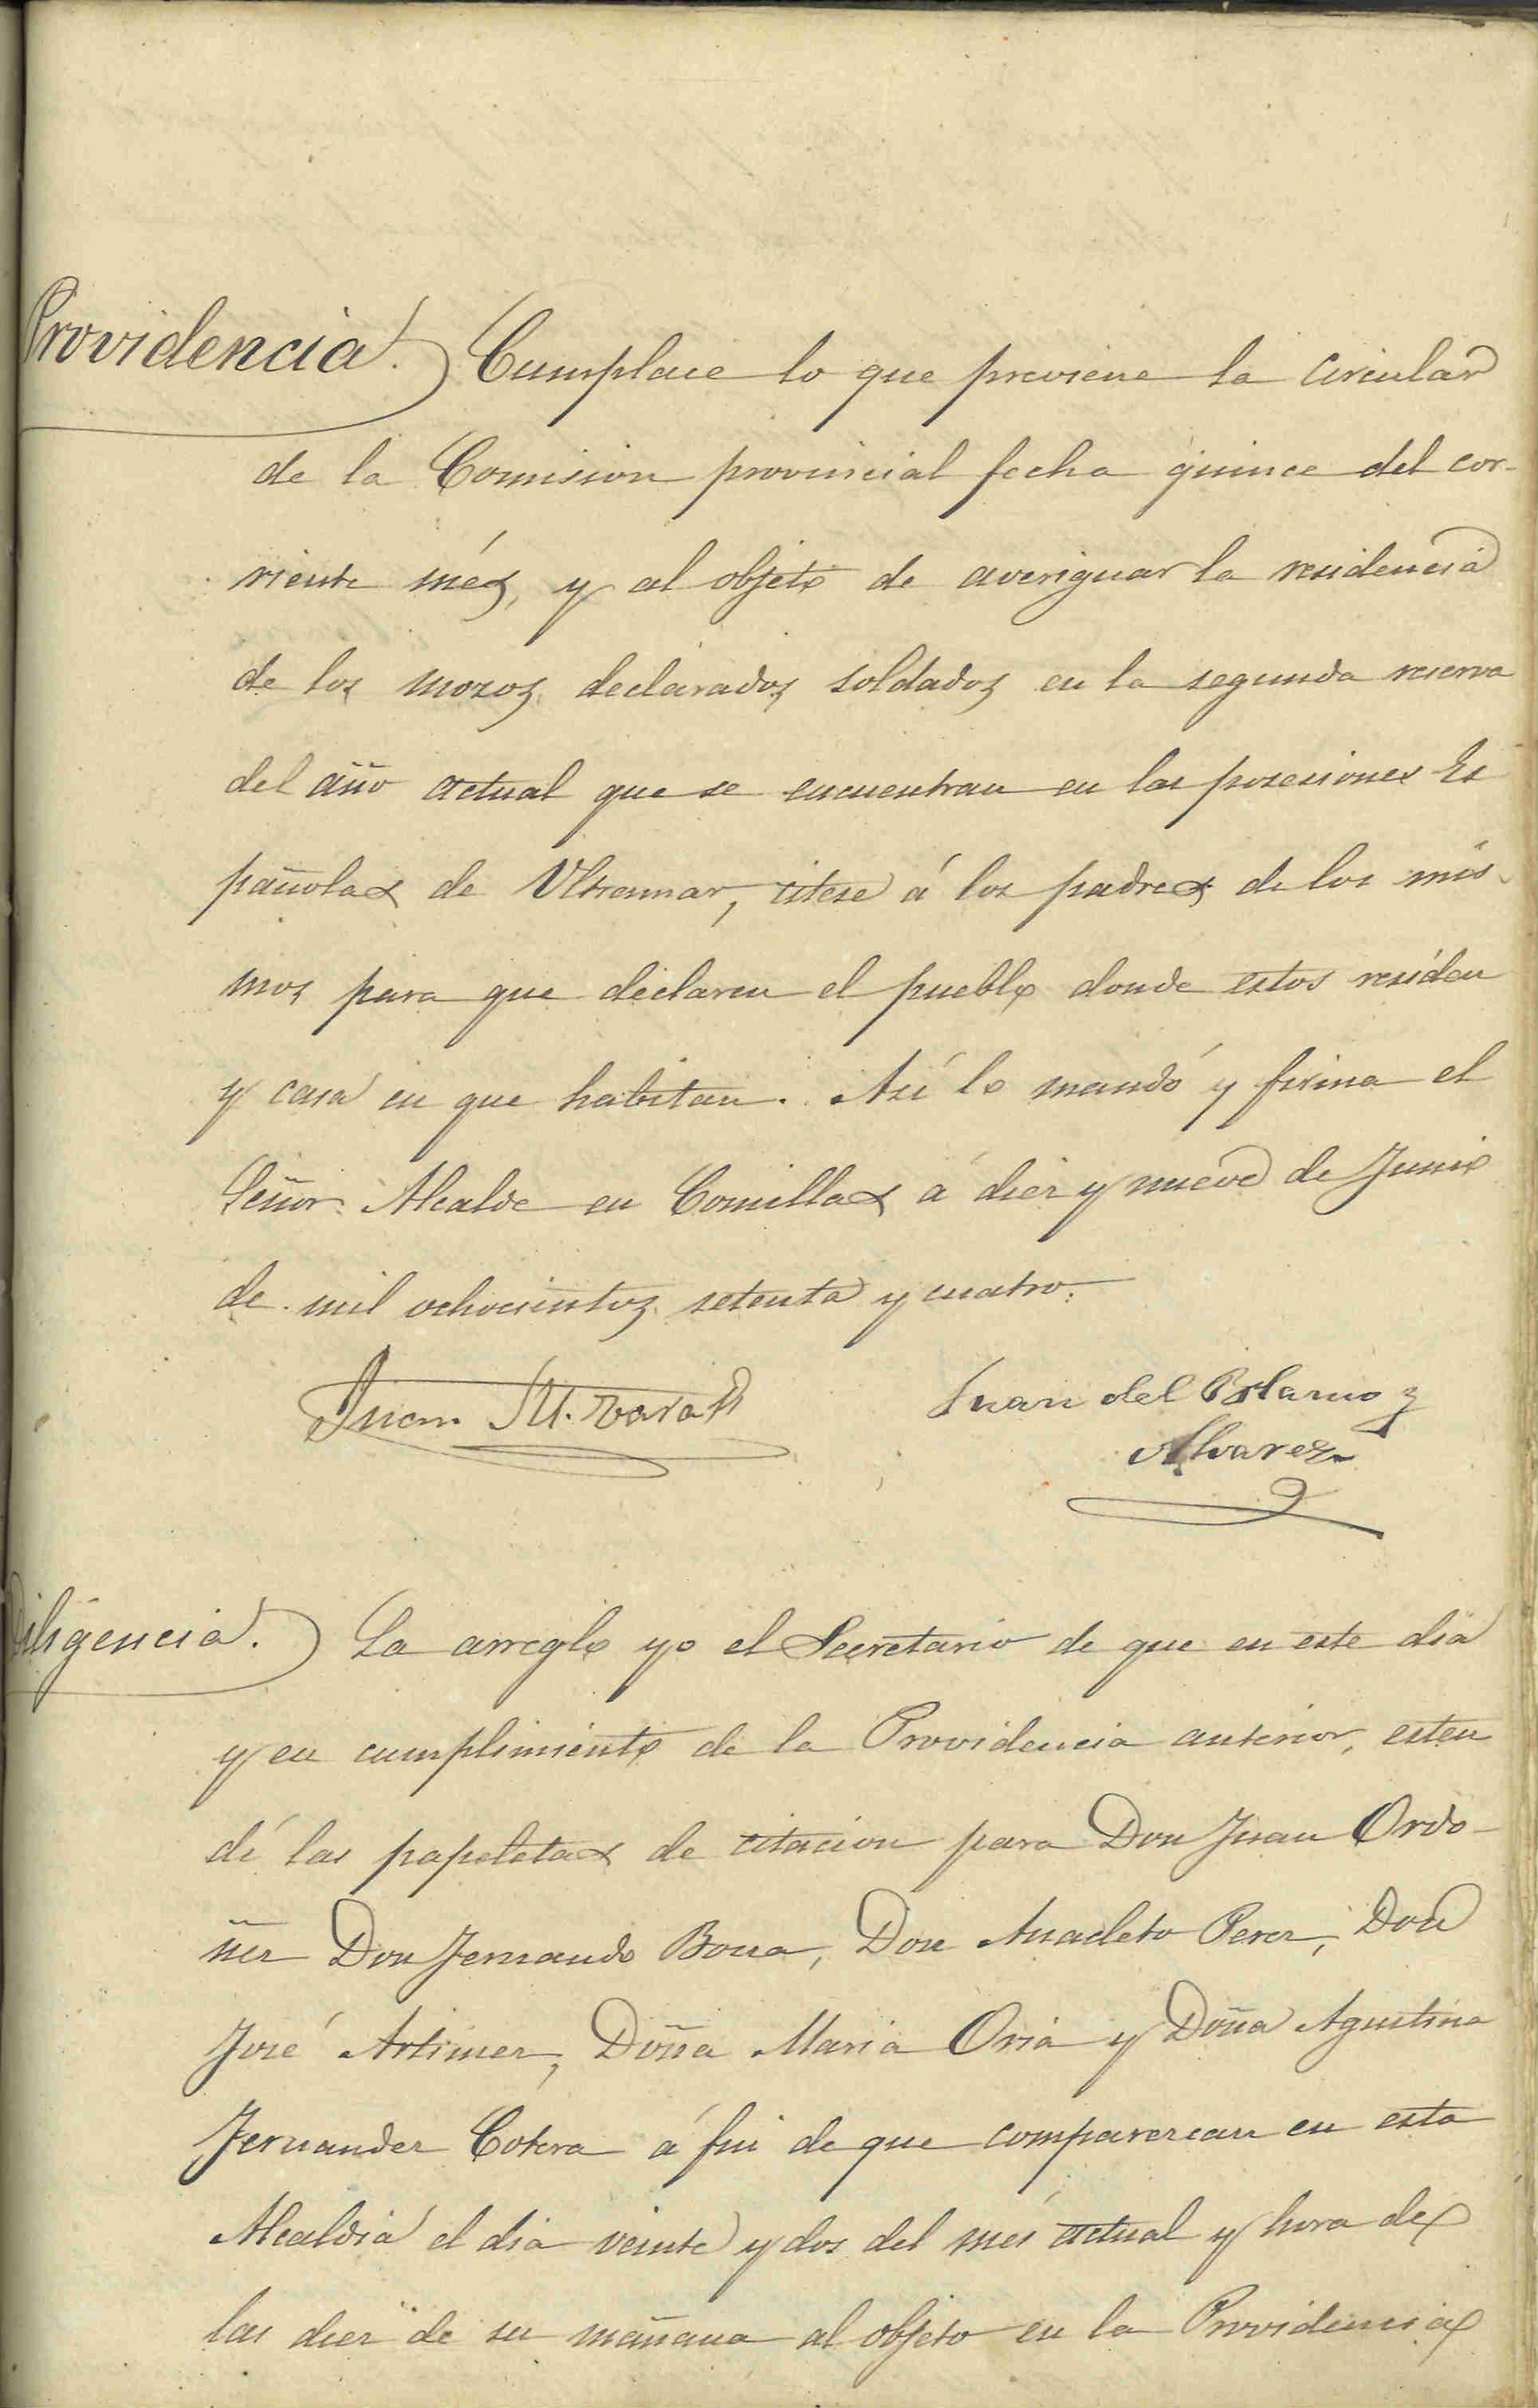 Providencia. Cumplace lo que previene la circular
de la Comision provincial fecha quince del cor-
riente més, y al objeto de averiguar la residencia
de los mozos declarados soldados en la segunda reserva
del año actual que se encuentran en las posesiones Es
pañolas de Ultramar, citese á los padres de los mis-
mos para que declaren el pueblo donde estos residen
y casa en que habitan. Así lo mandó y firma el
Señor Alcalde en Comillas á diez y nueve de Junio
de mil ochocientos setenta y cuatro.
Juan M.
Juan del
Alvarez
Diligencia. La arreglo yo el Secretario de que en este dia
y en cumplimiento de la Providencia anterior, esten
dí las papeletas de citacion para Don Juan Ordo-
ñez Don Fernando Bona, Don Anacleto Perez, Don
José Artimez, Doña Maria Oria y Doña Agustina
Fernandez Cotera á fin de que comparezcan en esta
Alcaldia el dia veinte y dos del més actual y hora de
las diez de su mañana al objeto en la Providencia